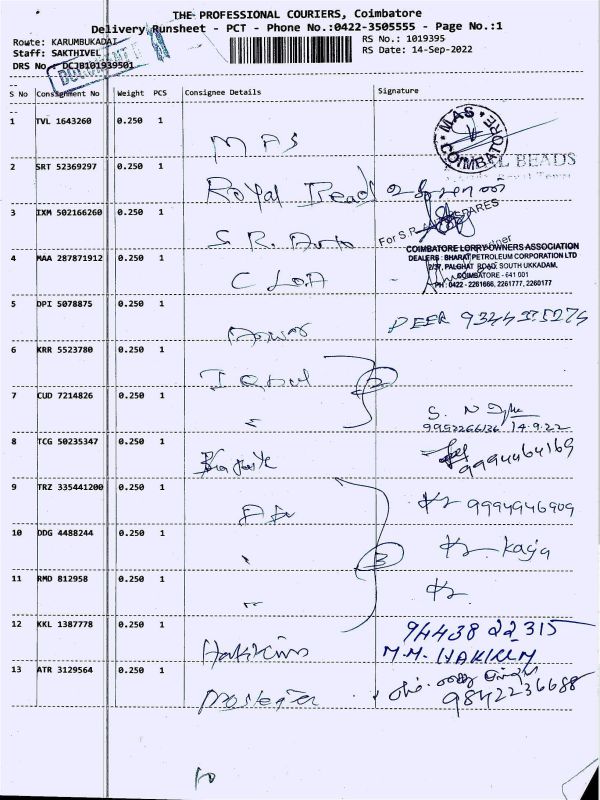 THE PROFESSIONAL COURIERS, Coimbatore
Delivery Runsheet - PCT - Phone No.:0422-3505555 - Page No.:1
Route: KARUMBUKADAI
RS No.: 1019395
Staff: SAKTHIVEL
RS Date: 14-Sep-2022
DRS No.: DCJB101939501
S No Consignment No Weight PCS Consignee Details Signature
1 TVL 1643260 0.250 1 MAS MAS COIMBATORE
2 SRT 52369297 0.250 1 Royal Bead BEADS
3 IXM 502166260 0.250 1 S.R. Auto For S.R. SPARES
4 MAA 287871912 0.250 1 CLOA
COIMBATORE LORRY OWNERS ASSOCIATION
DEALERS: BHARAT PETROLEUM CORPORATION LTD
2/37, PALGHAT ROAD, SOUTH UKKADAM,
COIMBATORE - 641 001
PH: 0422 - 2261666, 2261777, 2260177
5 DPI 5078875 0.250 1 Anwar PEER
6 KRR 5523780 0.250 1 Iqbal 2
7 CUD 7214826 0.250 1 " S. N
14.9.22
8 TCG 50235347 0.250 1 9994464169
9 TRZ 335441200 0.250 1 9994946909
10 DDG 4488244 0.250 1 " 3 Kaja
11 RMD 812958 0.250 1 "
12 KKL 1387778 0.250 1 94438 22315
M.M. HAKKIM
13 ATR 3129564 0.250 1 9842236688